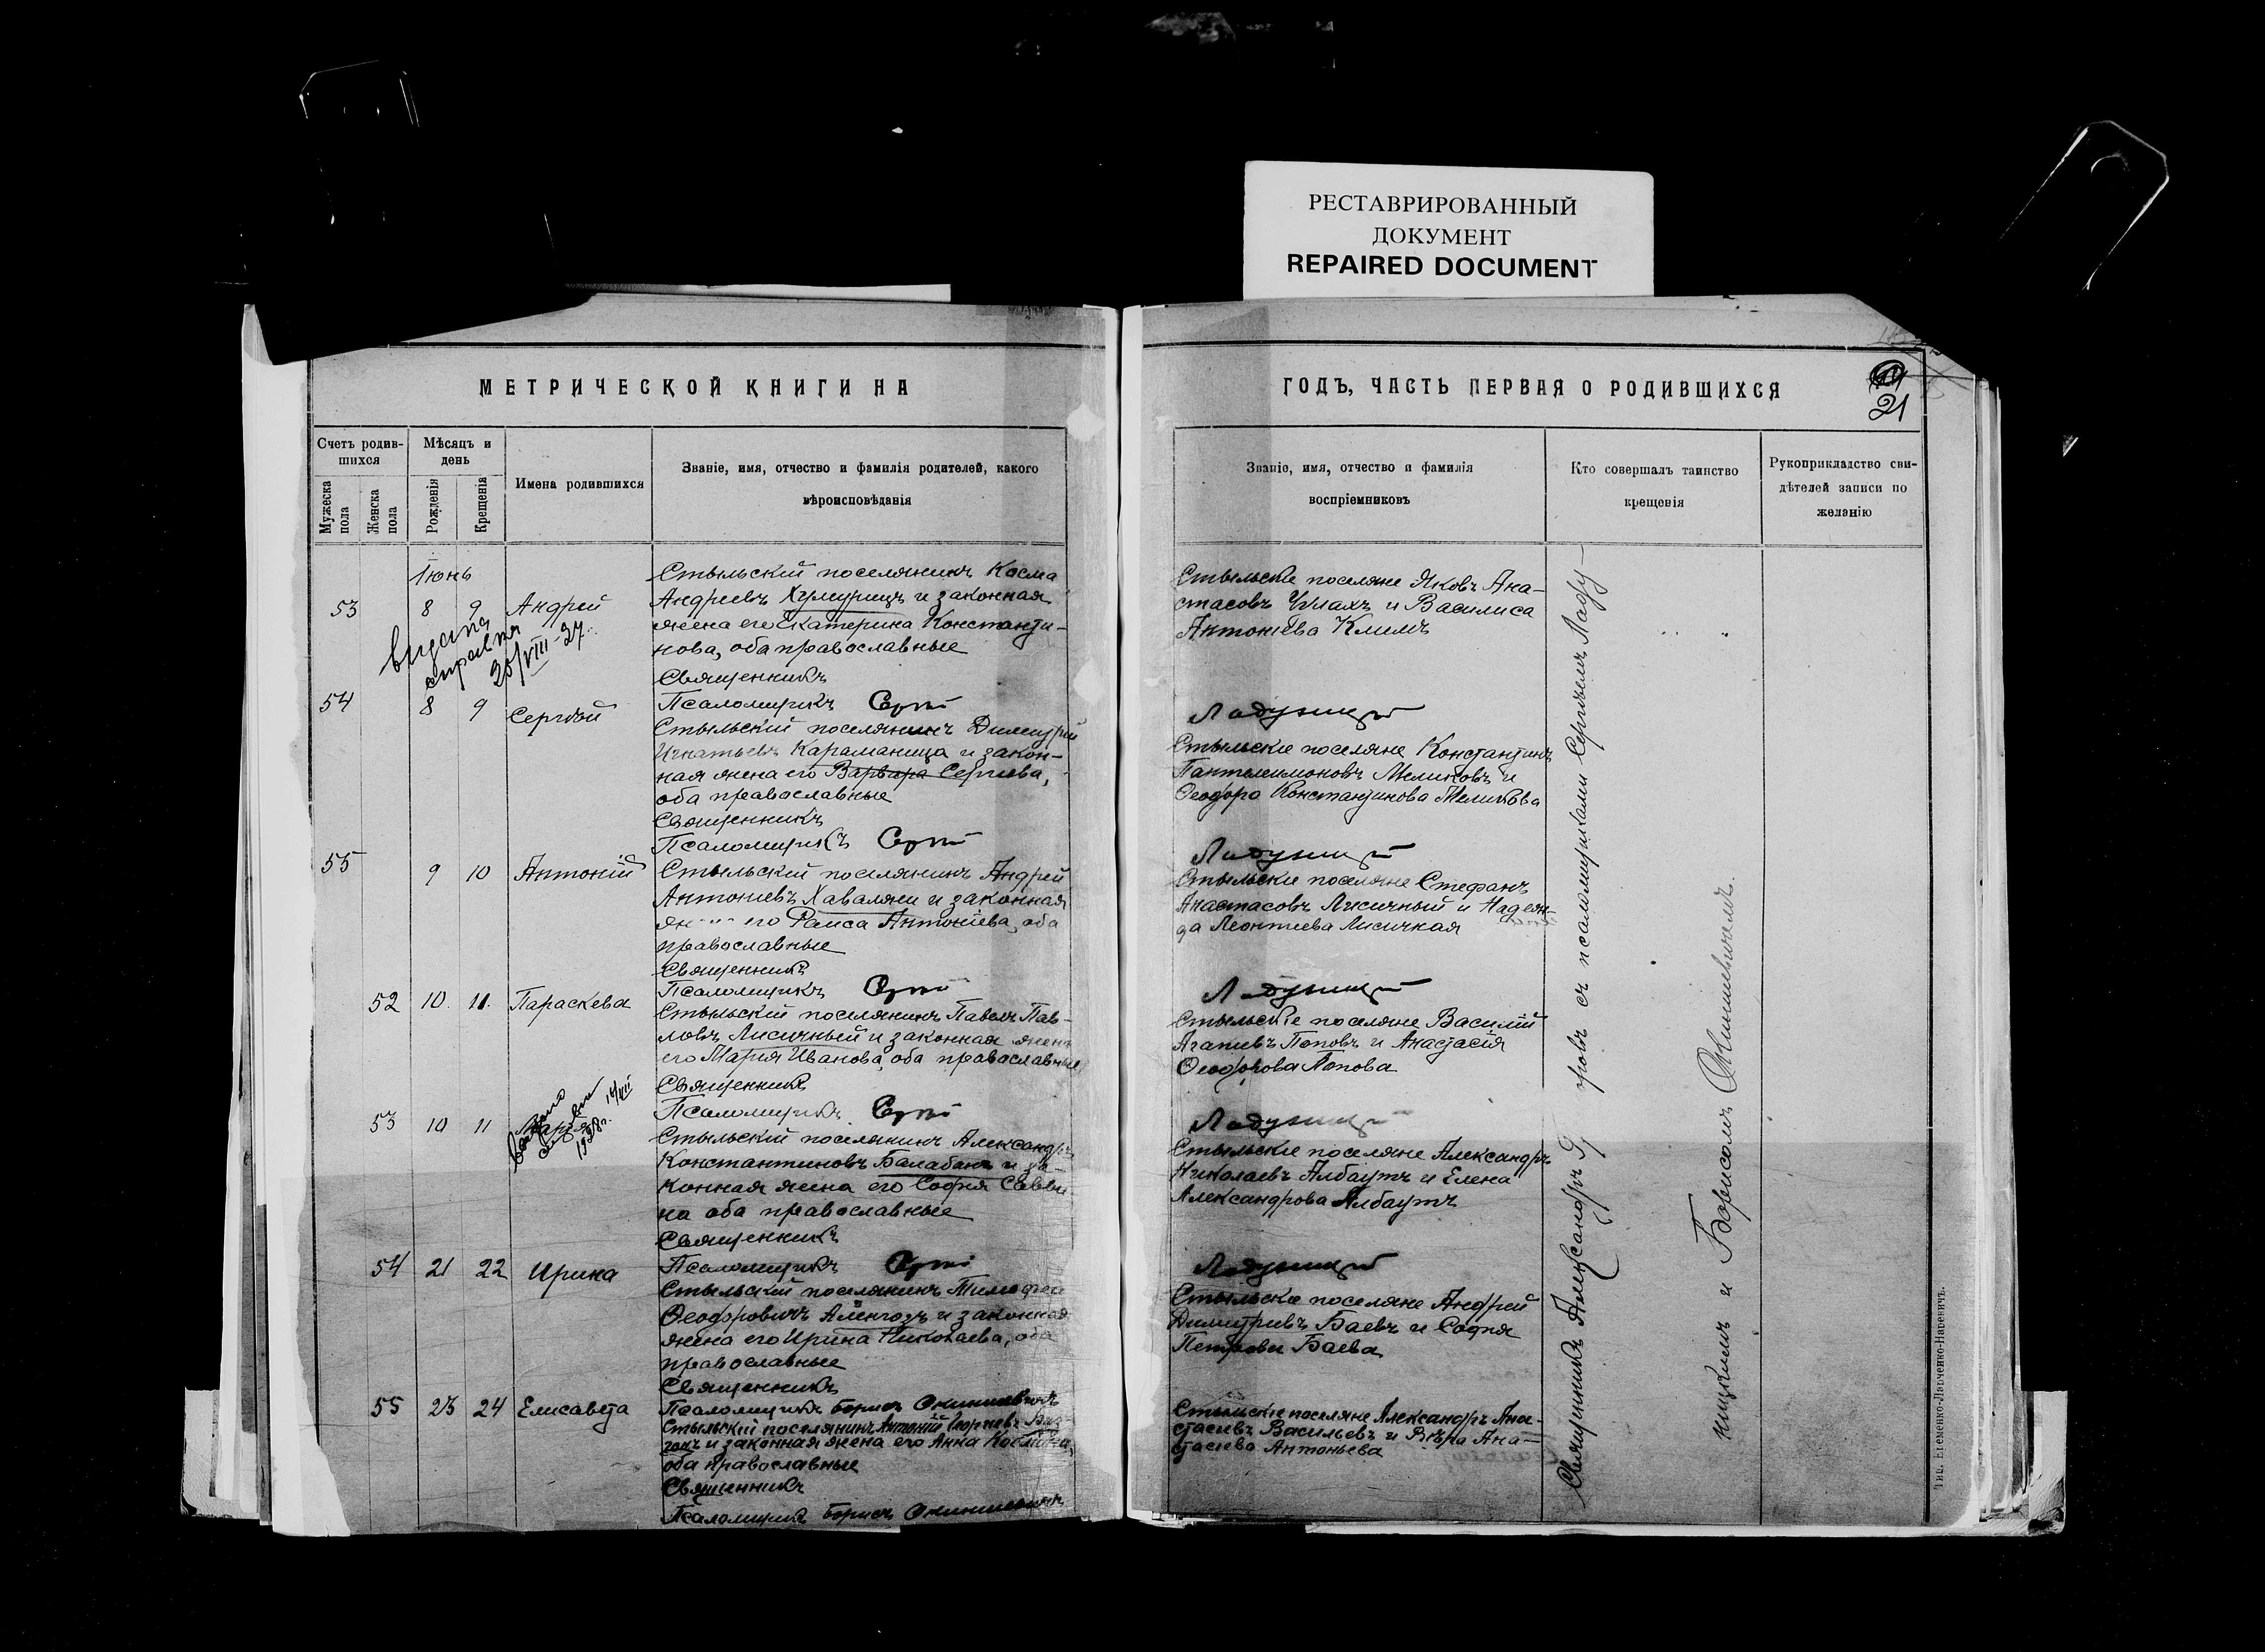 РЕСТАВРИРОВАННЫЙ
ДОКУМЕНТ
REPAIRED DOCUMENT
МЕТРИЧЕСКОЙ КНИГИ НА
Счетъ родив-
шихся
Мѣсяцъ и
день
Мужеска
пола
Женска
пола
Рожденія
Крещенія
Имена родившихся
Званіе, имя, отчество и фамилія родителей, какого
вѣроисповѣданія
Іюнь
53
8
9
Андрей
Стыльскій поселянинъ Косма
Андреевъ и законная
жена его Екатерина Константи-
нова, оба православные
Священникъ
Псаломщикъ
выдана
справка
VIII-27
54
8
9
Сергѣй
Стыльскій поселянинъ Димитрій
Игнатьевъ Караманица и закон-
ная жена его Варвара Сергіева,
оба православные
Священникъ
Псаломщикъ
55
9
10
Антоній
Стыльскій поселянинъ Андрей
Антоніевъ Хаваляни и законная
его Раиса Антоніева, оба
православные
Священникъ
Псаломщикъ
52
10
11
Параскева
Стыльскій поселянинъ Павелъ Пав-
ловъ Лисичный и законная жена
его Марія Иванова, оба православные
Священникъ
Псаломщикъ
53
10
11
1928г.
Стыльскій поселянинъ Александръ
Константиновъ Балабанъ и за-
конная жена его Софія Савви
на оба православные
Священникъ
Псаломщикъ
54
21
22
Ирина
Стыльскій поселянинъ Тимофей
Ѳеодоровичъ и законная
жена его Ирина Николаева, оба
православные
Священникъ
Псаломщикъ Борисъ
55
23
24
Елисавета
Стыльскій поселянинъ Антоній Георгіевъ
и законная жена его Анна Космина,
оба православные
Священникъ
Псаломщикъ Борисъ
ГОДЪ, ЧАСТЬ ПЕРВАЯ О РОДИВШИХСЯ
21
Званіе, имя, отчество и фамилія
воспріемниковъ
Кто совершалъ таинство
крещенія
Рукоприкладство сви-
дѣтелей записи по
желанію
Стыльскіе поселяне Яковъ Ана-
стасовъ и Василиса
Антоніева Климъ
Ладужицкій
Стыльскіе поселяне Константинъ
Пантелеимоновъ Меликовъ и
Ѳеодора Константинова Меликова
Ладужицкій
Стыльскіе поселяне Стефанъ
Анастасовъ Лисичный и Надеж-
да Леонтиева Лисичная
Ладужицкій
Стыльскіе поселяне Василій
Агапіевъ Поповъ и Анастасія
Ѳеодорова Попова
Ладужицкій
Стыльскіе поселяне Александръ
Николаевъ Албаутъ и Елена
Александрова Албаутъ
Ладужицкій
Стыльскіе поселяне Андрей
Димитріевъ Баевъ и Софія
Петрова Баева
Стыльскіе поселяне Александръ Ана-
стасіевъ Васильевъ и Вѣра Ана-
стасіева Антоньева
Священникъ Александръ съ псаломщиками Сергіемъ Ладу-
жицкимъ и Борисомъ